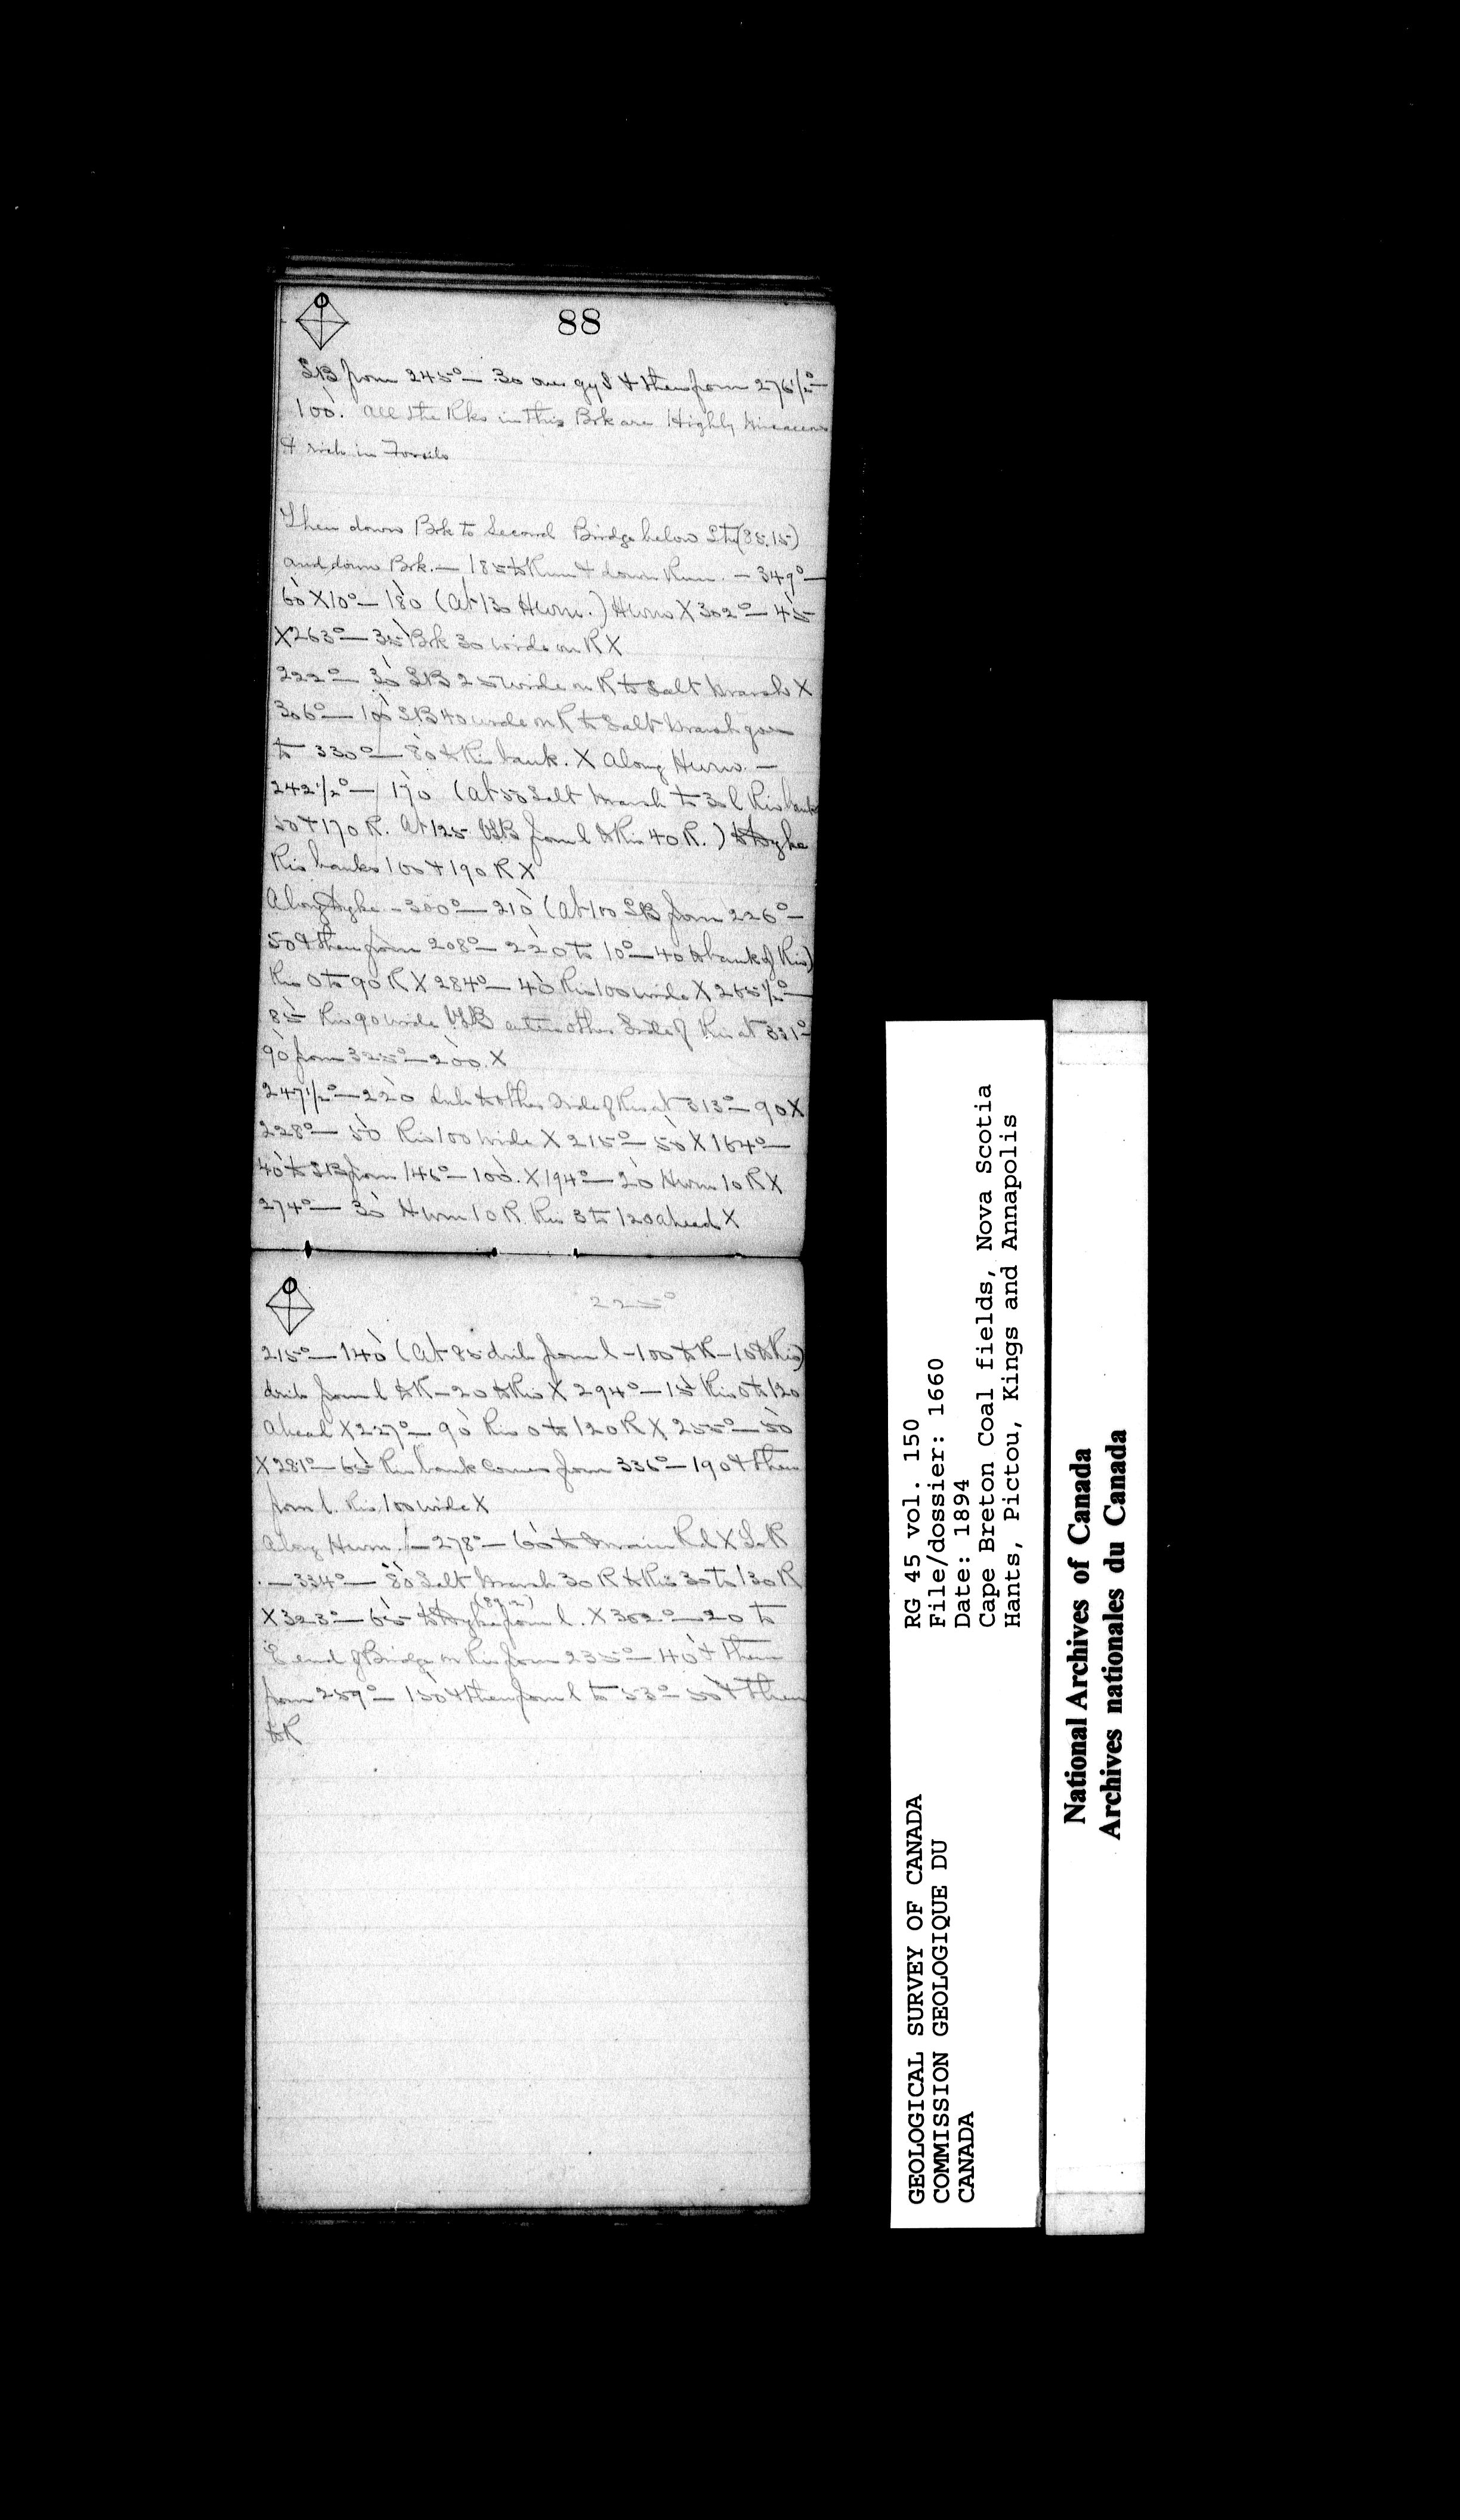 88
SB from 245° — 30 over gyd & then from 276½° —
100. All the Rks in this Brk are Highly Micaceous
& rich in Fossils
Then down Brk to Second Bridge below St (85.15)
and down Brk. — 185 to Run & down Run. — 349° —
60 X 10° — 180 (At 130 Hwm.) Hwm X 302° — 45
X 263° — 35 Brk 30 wide on R X
222° — 30 SB 25 wide on R to Salt Marsh X
306° — 100 SB 40 wide on R to Salt Marsh goes
to 330° — 80 to Riv bank. X Along Hwm. —
242½° — 170 (At 50 Salt Marsh to 30 l Riv bank
50 & 170 R. At 125 VSB from l to Riv 40 R.) to Dyke
Riv banks 100 & 190 R X
Along Dyke — 300° — 210 (At 100 SB from 226° —
50 & then from 208° — 220 to 10° — 40 to bank of Riv)
Riv 0 to 90 R X 284° — 40 Riv 100 wide X 265½° —
85 Riv 90 wide VSB enters other Side of Riv at 331° —
90 from 325° — 200. X
247½° — 220 drib to other Side of Riv at 313° — 90 X
228° — 50 Riv 100 wide X 215° — 50 X 164° —
40 to SB from 146° — 100. X 194° — 20 Hwm 10 R X
274° — 30 Hwm 10 R Riv 3 to 120 ahead X
225°
215° — 140 (At 85 drib from l — 100 to R — 10 to Riv)
drib from l to R — 20 to Riv X 294° — 15 Riv 0 to 120
Ahead X 227° — 90 Riv 0 to 120 R X 255° — 50
X 281° — 65 Riv bank comes from 336° — 190 & then
from l. Riv 100 wide X
Along Hwm. — 278° — 60 to Main Rd X to R
. — 334° — 80 Salt Marsh 30 R to Riv 30 to 130 R
X 323° — 65 to Dyke (89.2) from l. X 302° — 20 to
E end of Bridge on Riv from 235° — 40 & then
from 259° — 150 & then from l to 53° — 50 & then
to R
RG 45 vol. 150
File/dossier: 1660
Date: 1894
Cape Breton Coal fields, Nova Scotia
Hants, Pictou, Kings and Annapolis
GEOLOGICAL SURVEY OF CANADA
COMMISSION GEOLOGIQUE DU
CANADA
National Archives of Canada
Archives nationales du Canada